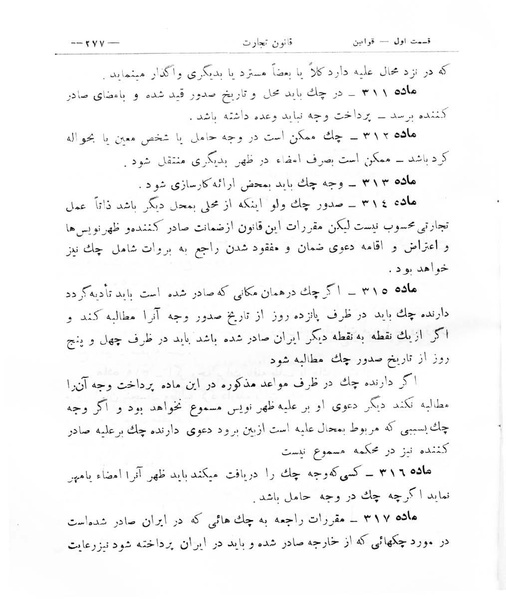 قسمت اول — قوانین قانون تجارت — ۲۷۷ —
که در نزد محال علیه دارد کلاً یا بعضاً مسترد یا بدیگری واگذار مینماید .
ماده ۳۱۱ — در چك باید محل و تاریخ صدور قید شده و بامضای صادر
کننده برسد — پرداخت وجه نباید وعده داشته باشد .
ماده ۳۱۲ — چك ممکن است در وجه حامل یا شخص معین یا بحواله
کرد باشد — ممکن است بصرف امضاء در ظهر بدیگری منتقل شود .
ماده ۳۱۳ — وجه چك باید بمحض ارائه کارسازی شود .
ماده ۳۱۴ — صدور چك ولو اینکه از محلی بمحل دیگر باشد ذاتاً عمل
تجارتی محسوب نیست لیکن مقررات این قانون از ضمانت صادر کننده و ظهر نویس ها
و اعتراض و اقامه دعوی ضمان و مفقود شدن راجع به بروات شامل چك نیز
خواهد بود .
ماده ۳۱۵ — اگر چك در همان مکانی که صادر شده است باید تأدیه گردد
دارنده چك باید در ظرف پانزده روز از تاریخ صدور وجه آنرا مطالبه کند و
اگر از یك نقطه به نقطه دیگر ایران صادر شده باشد باید در ظرف چهل و پنج
روز از تاریخ صدور چك مطالبه شود
اگر دارنده چك در ظرف مواعد مذکوره در این ماده پرداخت وجه آن را
مطالبه نکند دیگر دعوی او بر علیه ظهر نویس مسموع نخواهد بود و اگر وجه
چك بسببی که مربوط بمحال علیه است ازبین برود دعوی دارنده چك بر علیه صادر
کننده نیز در محکمه مسموع نیست
ماده ۳۱۶ — کسی که وجه چك را دریافت میکند باید ظهر آنرا امضاء یا مهر
نماید اگر چه چك در وجه حامل باشد .
ماده ۳۱۷ — مقررات راجعه به چك هائی که در ایران صادر شده است
در مورد چکهائی که از خارجه صادر شده و باید در ایران پرداخته شود نیز رعایت